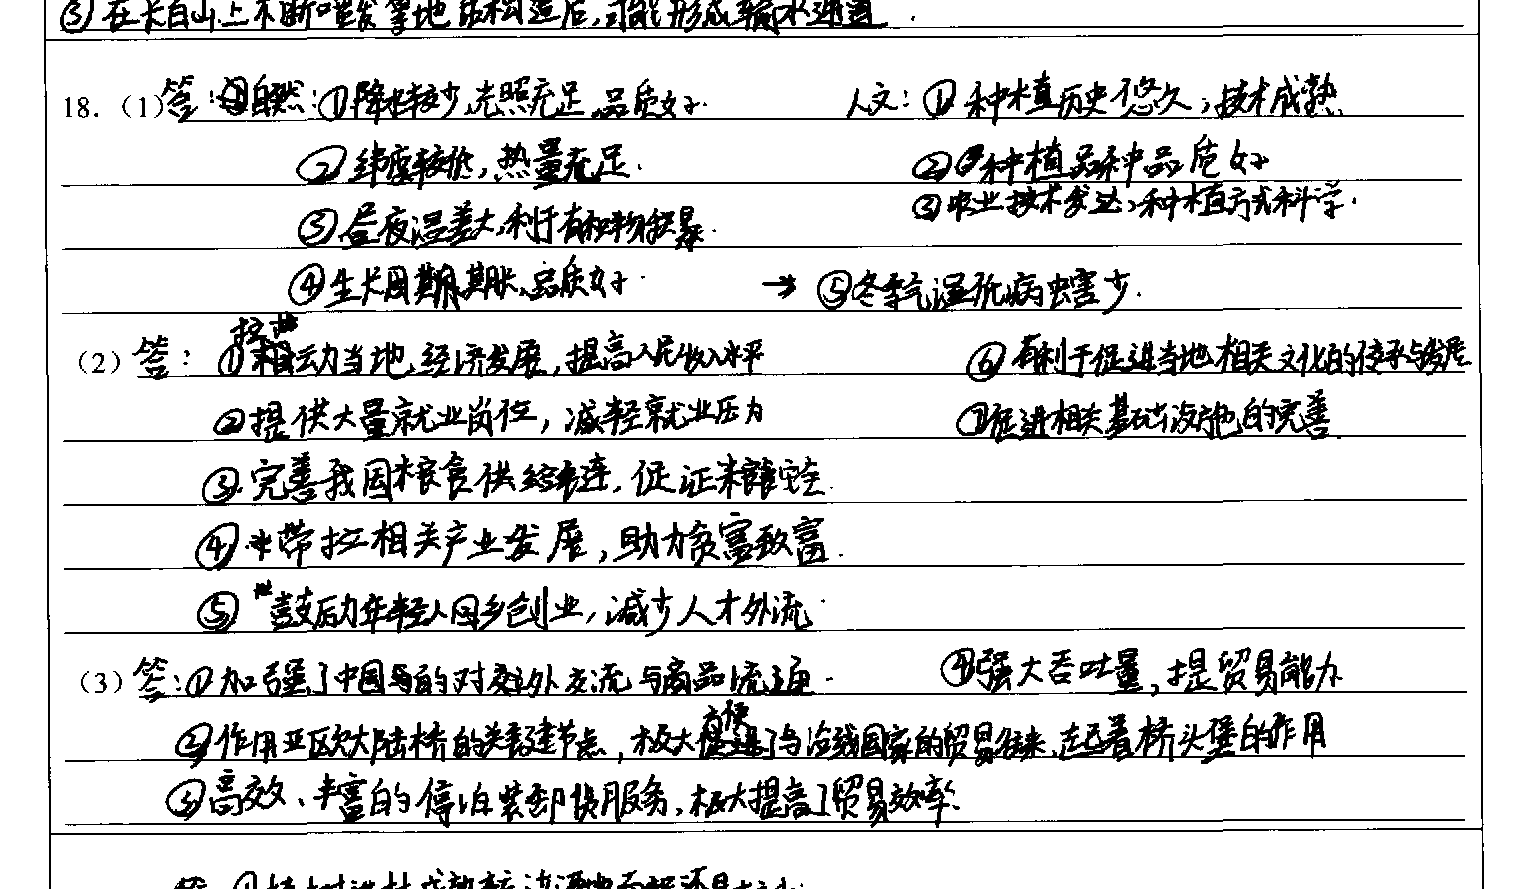 ③在长白山上不断喷发等地 结构造后，可能形成输水通道.
18.（1）答：自然：①降水较少，光照充足，品质好. 人文：①种植历史悠久，技术成熟.
②纬度较低，热量充足. ②种植品种品质好
③昼夜温差大，利于有机物积累. ③农业技术发达，种植方式科学.
④生长周期长，品质好. → ⑤冬季气温低，病虫害少.
（2）答：①拉动当地经济发展，提高人民收入水平 ⑥有利于促进当地相关文化的传承与发展
②提供大量就业岗位，减轻就业压力 ⑦促进相关基础设施的完善.
③完善我国粮食供给链，保证粮食安全.
④带拉相关产业发展，助力负富致富.
⑤鼓励年轻人回乡创业，减少人才外流.
（3）答：①加强了中国的对外交流与商品流通. ④强大吞吐量，提贸易能力
②作用亚欧大陆桥的关键节点，极大方便了与沿线国家的贸易往来，起着桥头堡的作用
③高效、丰富的停泊装卸货服务，极大提高了贸易效率.
答 ①